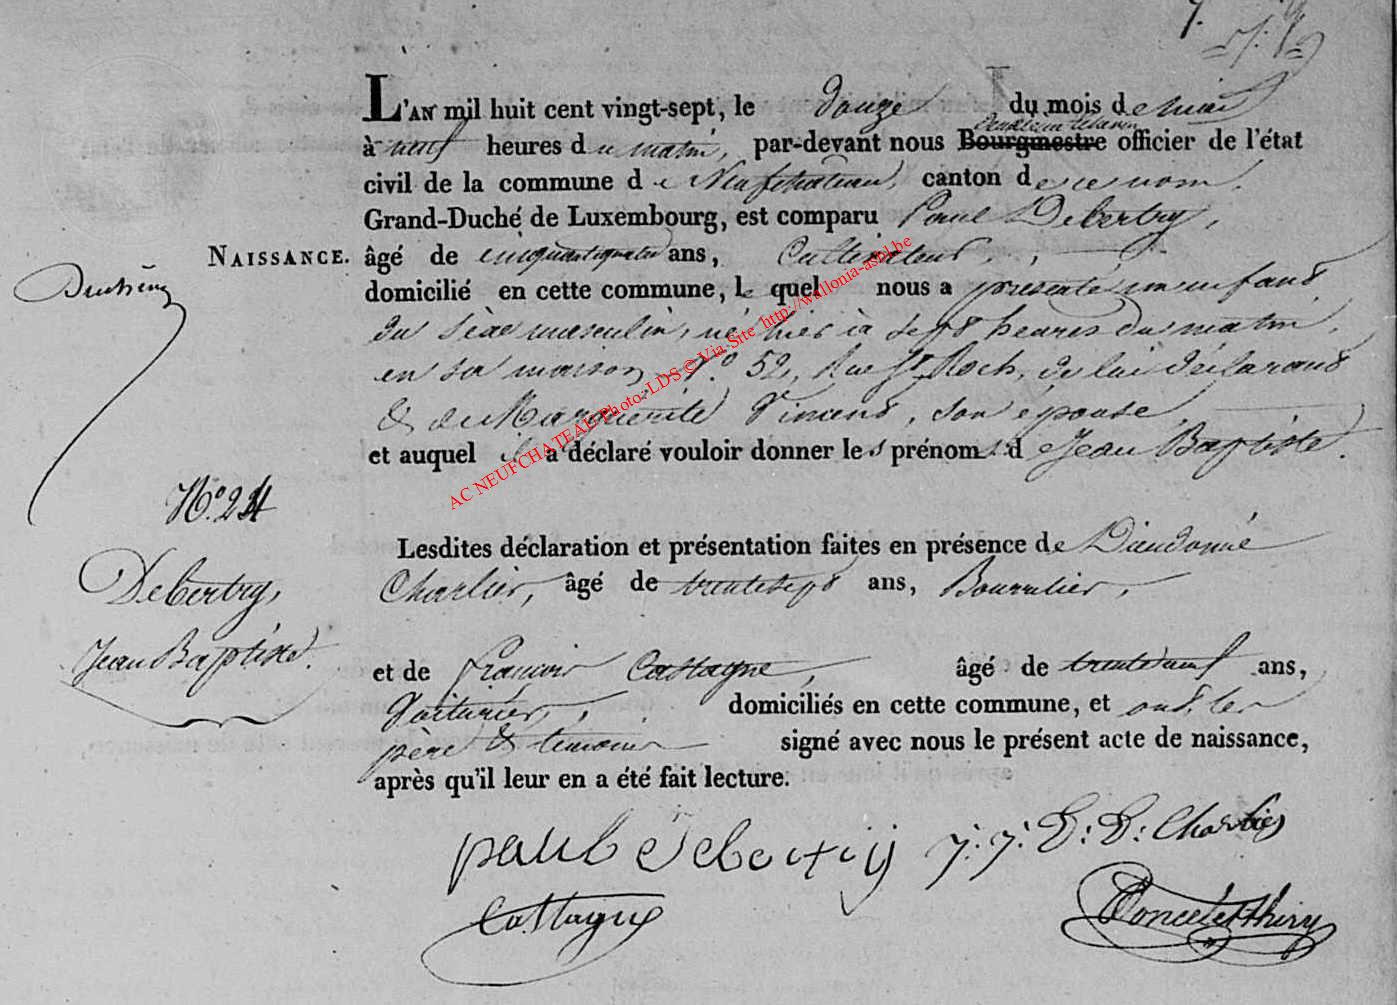 L'AN mil huit cent vingt-sept, le douze du mois de mai
à neuf heures du matin, par-devant nous Bourgmestre officier de l'état
civil de la commune de Neufchateau, canton de ce nom.
Grand-Duché de Luxembourg, est comparu Paul Debertry,
NAISSANCE. âgé de cinquantequatre ans, Cultivateur,
domicilié en cette commune, lequel nous a presenté un enfant
du sèxe masculin, né hier à sept heures du matin,
en sa maison N.º 52, Rue St Roch, de lui déclarant
& de Marguerite Piment, son epouse,
et auquel il a déclaré vouloir donner les prénoms de Jean Baptiste.
Nº. 24
Lesdites déclaration et présentation faites en présence de Dieudonné
Charlier, âgé de trentesept ans, Bourrelier,
Debertry,
Jean Baptiste.
et de François Castagne, âgé de trenteneuf ans,
Voiturier, domiciliés en cette commune, et ont, les
père & temoins signé avec nous le présent acte de naissance,
après qu'il leur en a été fait lecture.
paul debertry J: J: D: D: Charlier
Castagne Poncelet Thiry
AC NEUFCHATEAU Photo: LDS © Via Site http://wallonia-asbl.be